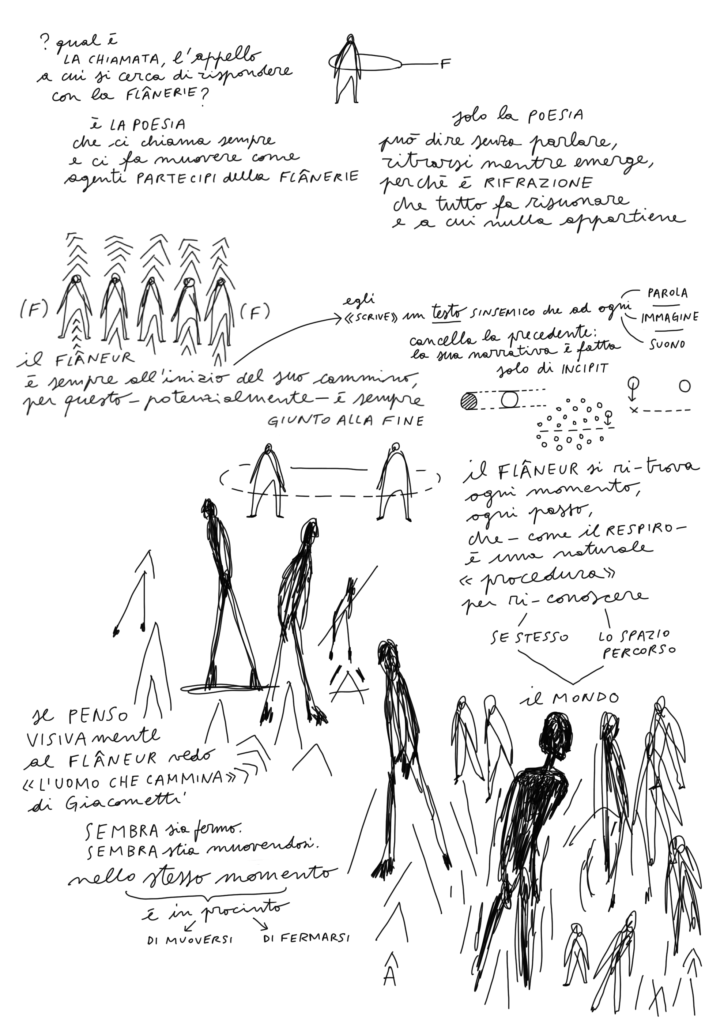 ? qual è
LA CHIAMATA, l'appello
a cui si cerca di rispondere
con la FLÂNERIE?
F
è LA POESIA
che ci chiama sempre
e ci fa muovere come
agenti PARTECIPI della FLÂNERIE
solo la POESIA
può dire senza parlare,
ritrarsi mentre emerge,
perchè è RIFRAZIONE
che tutto fa risuonare
e a cui nulla appartiene
(F)
(F)
il FLÂNEUR
è sempre all'inizio del suo cammino,
per questo – potenzialmente – è sempre
GIUNTO ALLA FINE
egli
«SCRIVE» un testo SINSEMICO che ad ogni
PAROLA
IMMAGINE
SUONO
cancella la precedente:
la sua narrativa è fatta
solo di INCIPIT
il FLÂNEUR si ri-trova
ogni momento,
ogni passo,
che – come il RESPIRO –
è una naturale
«procedura»
per ri-conoscere
SE STESSO
LO SPAZIO
PERCORSO
il MONDO
se PENSO
VISIVAmente
al FLÂNEUR vedo
«L'UOMO CHE CAMMINA»
di Giacometti
SEMBRA sia fermo.
SEMBRA stia muovendosi.
nello stesso momento
è in procinto
DI MUOVERSI
DI FERMARSI